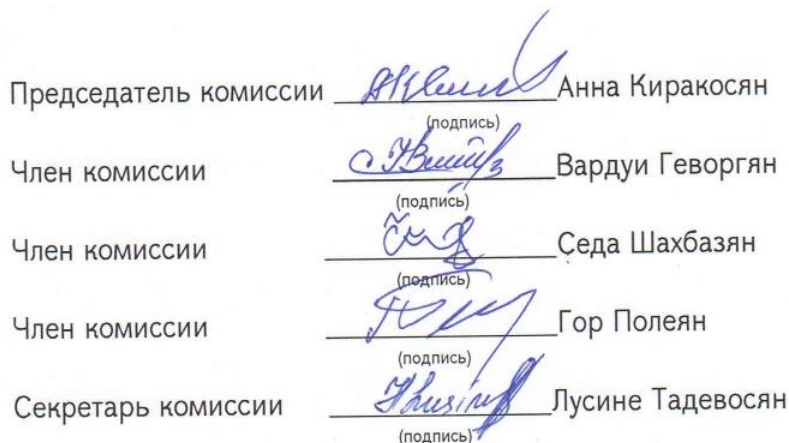 Председатель комиссии Анна Киракосян
(подпись)
Член комиссии Вардуи Геворгян
(подпись)
Член комиссии Седа Шахбазян
(подпись)
Член комиссии Гор Полеян
(подпись)
Секретарь комиссии Лусине Тадевосян
(подпись)